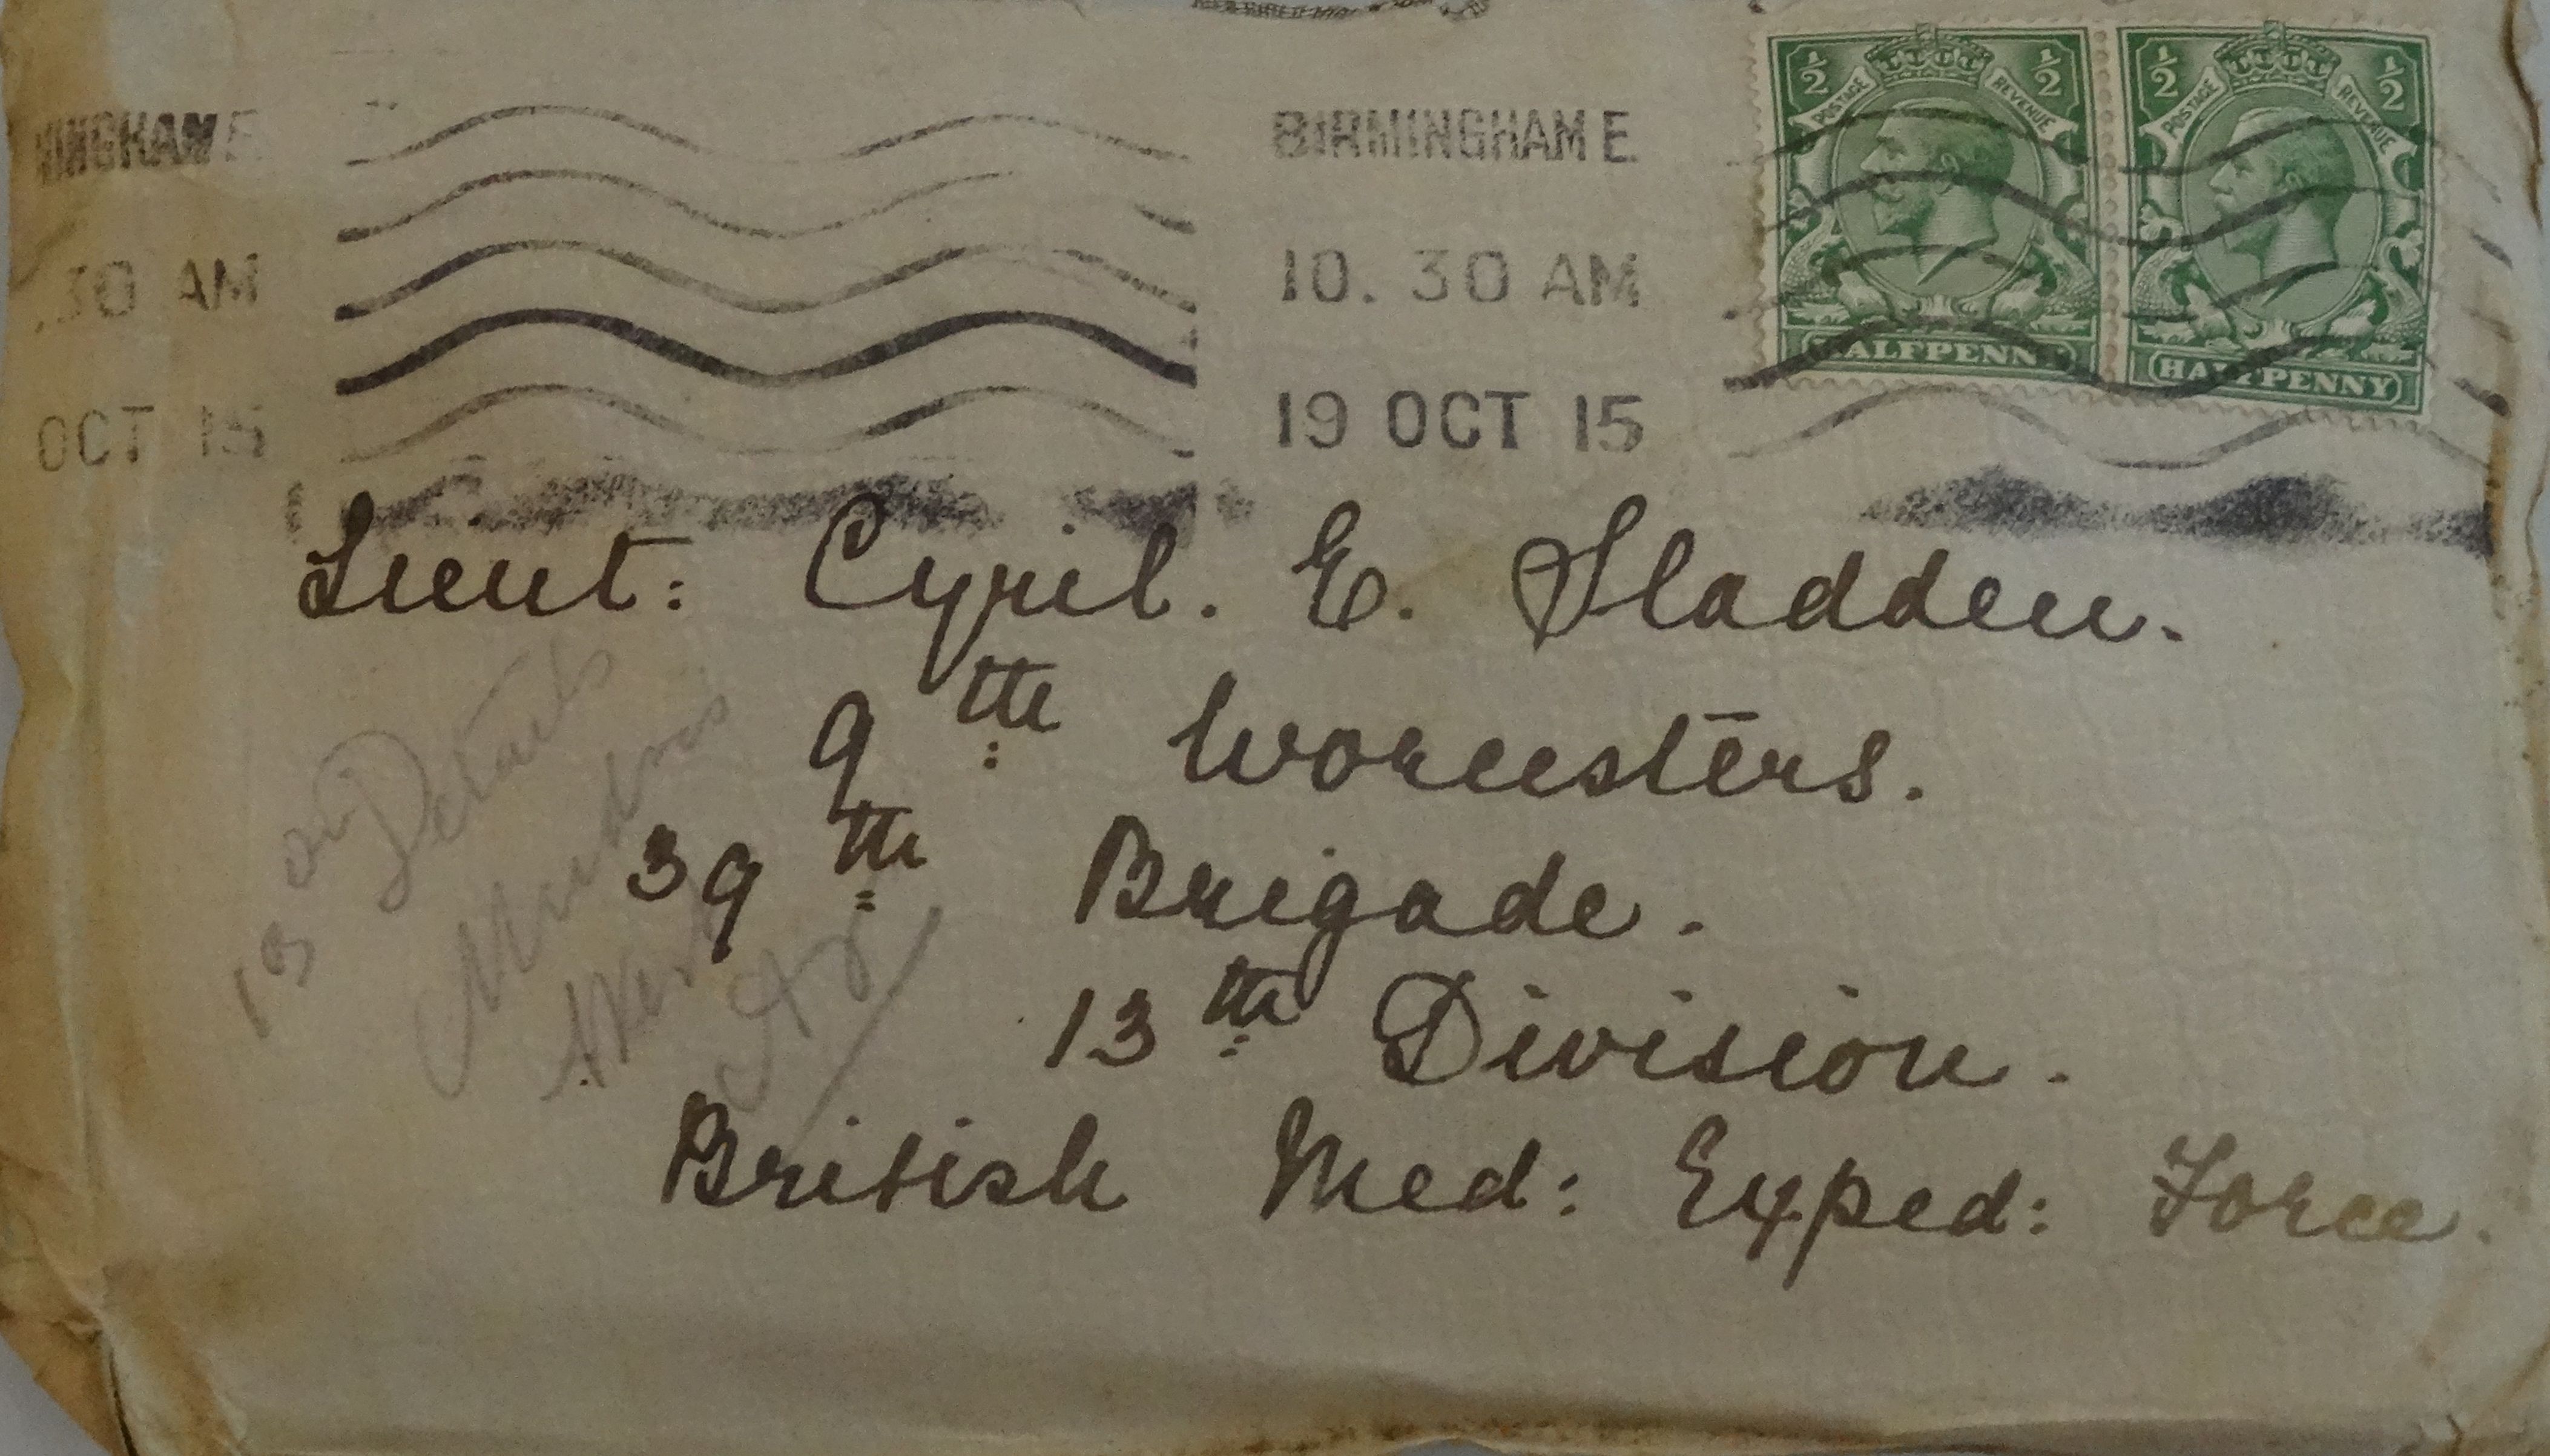 BIRMINGHAM E.
10. 30 AM
19 OCT 15
MINGHAM E.
.30 AM
OCT 15
½ ½
POSTAGE REVENUE
HALFPENNY
½ ½
POSTAGE REVENUE
HALFPENNY
Lieut: Cyril. E. Sladden.
9th Worcesters.
39th Brigade.
13th Division.
British Med: Exped: Force.
13 Details
Mudros